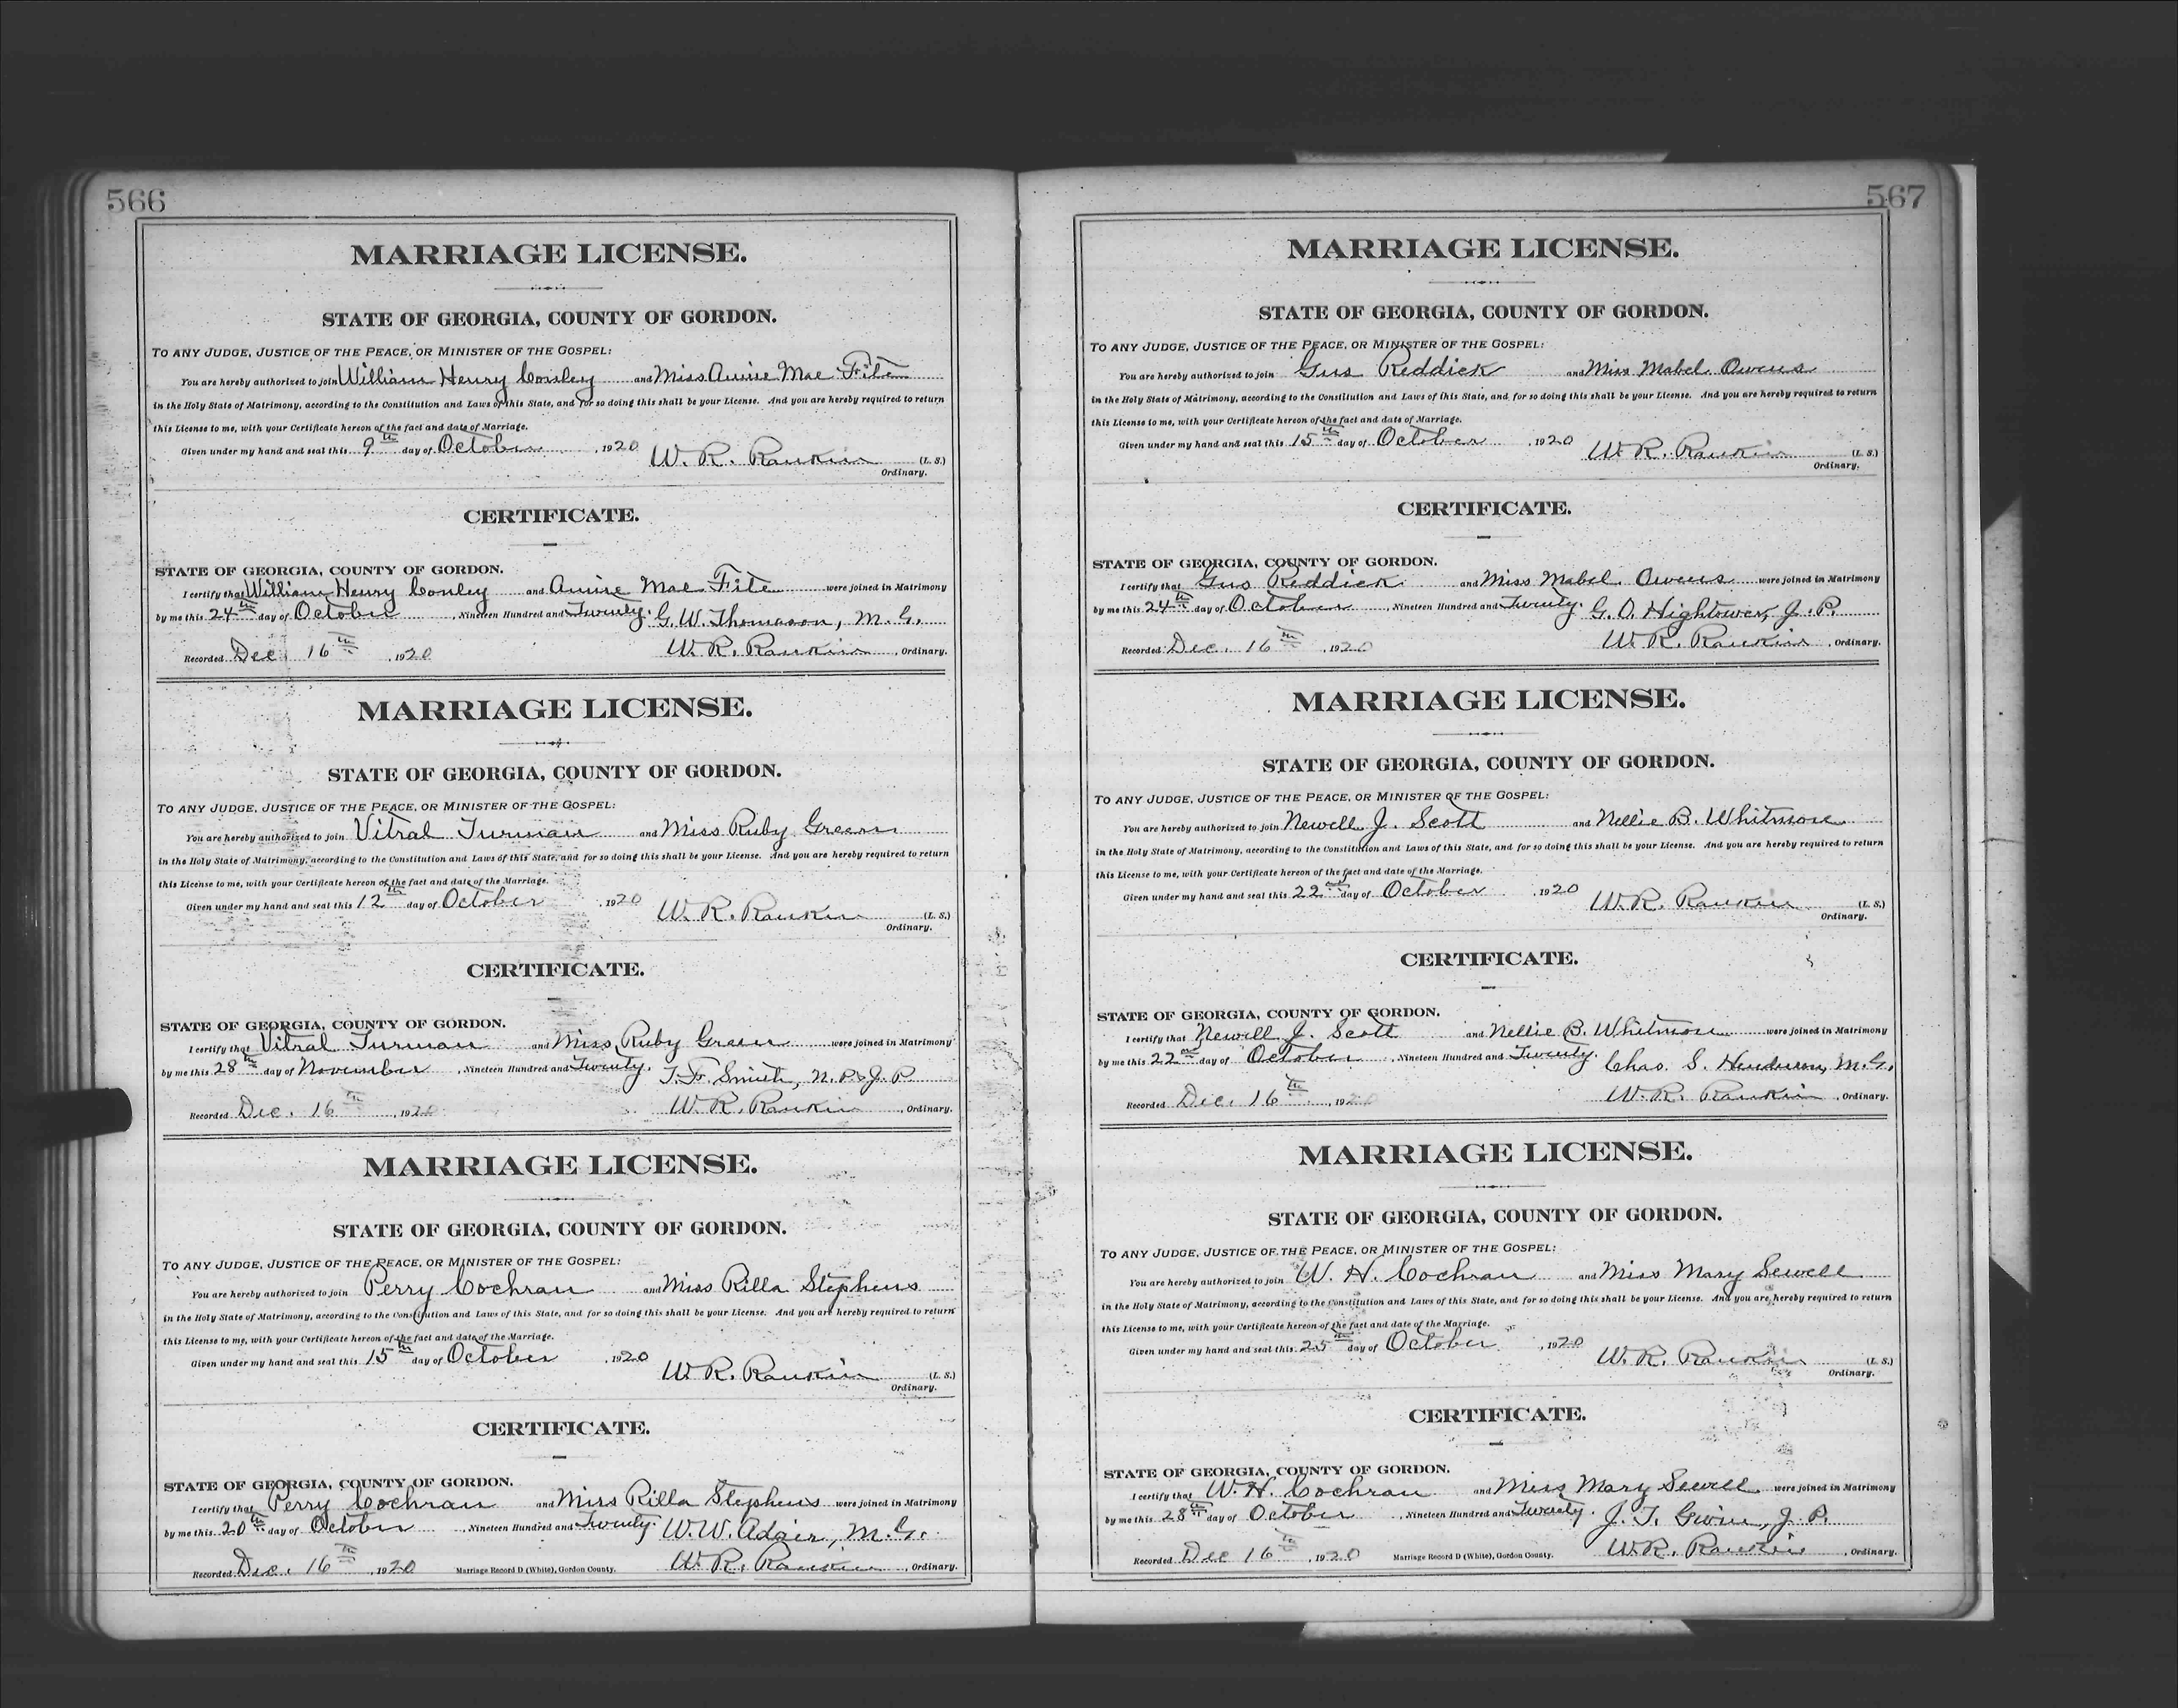 566
MARRIAGE LICENSE.
STATE OF GEORGIA, COUNTY OF GORDON.
TO ANY JUDGE, JUSTICE OF THE PEACE, OR MINISTER OF THE GOSPEL:
You are hereby authorized to join William Henry Conley and Miss Annie Mae Fite
in the Holy State of Matrimony, according to the Constitution and Laws of this State, and for so doing this shall be your License. And you are hereby required to return
this License to me, with your Certificate hereon of the fact and date of Marriage.
Given under my hand and seal this 9th day of October, 1920 W. R. Rankin (L. S.)
Ordinary.
CERTIFICATE.
STATE OF GEORGIA, COUNTY OF GORDON.
I certify that William Henry Conley and Annie Mae Fite were joined in Matrimony
by me this 24th day of October, Nineteen Hundred and Twenty. G. W. Thomason, M. G.
Recorded Dec. 16th, 1920 W. R. Rankin, Ordinary.
MARRIAGE LICENSE.
STATE OF GEORGIA, COUNTY OF GORDON.
TO ANY JUDGE, JUSTICE OF THE PEACE, OR MINISTER OF THE GOSPEL:
You are hereby authorized to join Vitral Turman and Miss Ruby Green
in the Holy State of Matrimony, according to the Constitution and Laws of this State, and for so doing this shall be your License. And you are hereby required to return
this License to me, with your Certificate hereon of the fact and date of the Marriage.
Given under my hand and seal this 12th day of October, 1920 W. R. Rankin (L. S.)
Ordinary.
CERTIFICATE.
STATE OF GEORGIA, COUNTY OF GORDON.
I certify that Vitral Turman and Miss Ruby Green were joined in Matrimony
by me this 28th day of November, Nineteen Hundred and Twenty. T. F. Smith, N. P. & J. P.
Recorded Dec. 16th, 1920 W. R. Rankin, Ordinary.
MARRIAGE LICENSE.
STATE OF GEORGIA, COUNTY OF GORDON.
TO ANY JUDGE, JUSTICE OF THE PEACE, OR MINISTER OF THE GOSPEL:
You are hereby authorized to join Perry Cochran and Miss Rilla Stephens
in the Holy State of Matrimony, according to the Constitution and Laws of this State, and for so doing this shall be your License. And you are hereby required to return
this License to me, with your Certificate hereon of the fact and date of the Marriage.
Given under my hand and seal this 15th day of October, 1920 W. R. Rankin (L. S.)
Ordinary.
CERTIFICATE.
STATE OF GEORGIA, COUNTY OF GORDON.
I certify that Perry Cochran and Miss Rilla Stephens were joined in Matrimony
by me this 20th day of October, Nineteen Hundred and Twenty. W. W. Adair, M. G.
Recorded Dec. 16th, 1920 Marriage Record D (White), Gordon County. W. R. Rankin, Ordinary.
567
MARRIAGE LICENSE.
STATE OF GEORGIA, COUNTY OF GORDON.
TO ANY JUDGE, JUSTICE OF THE PEACE, OR MINISTER OF THE GOSPEL:
You are hereby authorized to join Gus Reddick and Miss Mabel Owens
in the Holy State of Matrimony, according to the Constitution and Laws of this State, and for so doing this shall be your License. And you are hereby required to return
this License to me, with your Certificate hereon of the fact and date of Marriage.
Given under my hand and seal this 15th day of October, 1920 W. R. Rankin (L. S.)
Ordinary.
CERTIFICATE.
STATE OF GEORGIA, COUNTY OF GORDON.
I certify that Gus Reddick and Miss Mabel Owens were joined in Matrimony
by me this 24th day of October, Nineteen Hundred and Twenty. G. O. Hightower, J. P.
Recorded Dec. 16th, 1920 W. R. Rankin, Ordinary.
MARRIAGE LICENSE.
STATE OF GEORGIA, COUNTY OF GORDON.
TO ANY JUDGE, JUSTICE OF THE PEACE, OR MINISTER OF THE GOSPEL:
You are hereby authorized to join Newell J. Scott and Nellie B. Whitmore
in the Holy State of Matrimony, according to the Constitution and Laws of this State, and for so doing this shall be your License. And you are hereby required to return
this License to me, with your Certificate hereon of the fact and date of the Marriage.
Given under my hand and seal this 22nd day of October, 1920 W. R. Rankin (L. S.)
Ordinary.
CERTIFICATE.
STATE OF GEORGIA, COUNTY OF GORDON.
I certify that Newell J. Scott and Nellie B. Whitmore were joined in Matrimony
by me this 22nd day of October, Nineteen Hundred and Twenty. Chas. S. Henderson, M. G.
Recorded Dec. 16th, 1920 W. R. Rankin, Ordinary.
MARRIAGE LICENSE.
STATE OF GEORGIA, COUNTY OF GORDON.
TO ANY JUDGE, JUSTICE OF THE PEACE, OR MINISTER OF THE GOSPEL:
You are hereby authorized to join W. H. Cochran and Miss Mary Sewell
in the Holy State of Matrimony, according to the Constitution and Laws of this State, and for so doing this shall be your License. And you are hereby required to return
this License to me, with your Certificate hereon of the fact and date of the Marriage.
Given under my hand and seal this 25th day of October, 1920 W. R. Rankin (L. S.)
Ordinary.
CERTIFICATE.
STATE OF GEORGIA, COUNTY OF GORDON.
I certify that W. H. Cochran and Miss Mary Sewell were joined in Matrimony
by me this 28th day of October, Nineteen Hundred and Twenty. J. T. Gwin, J. P.
Recorded Dec 16th, 1920 Marriage Record D (White), Gordon County. W. R. Rankin, Ordinary.